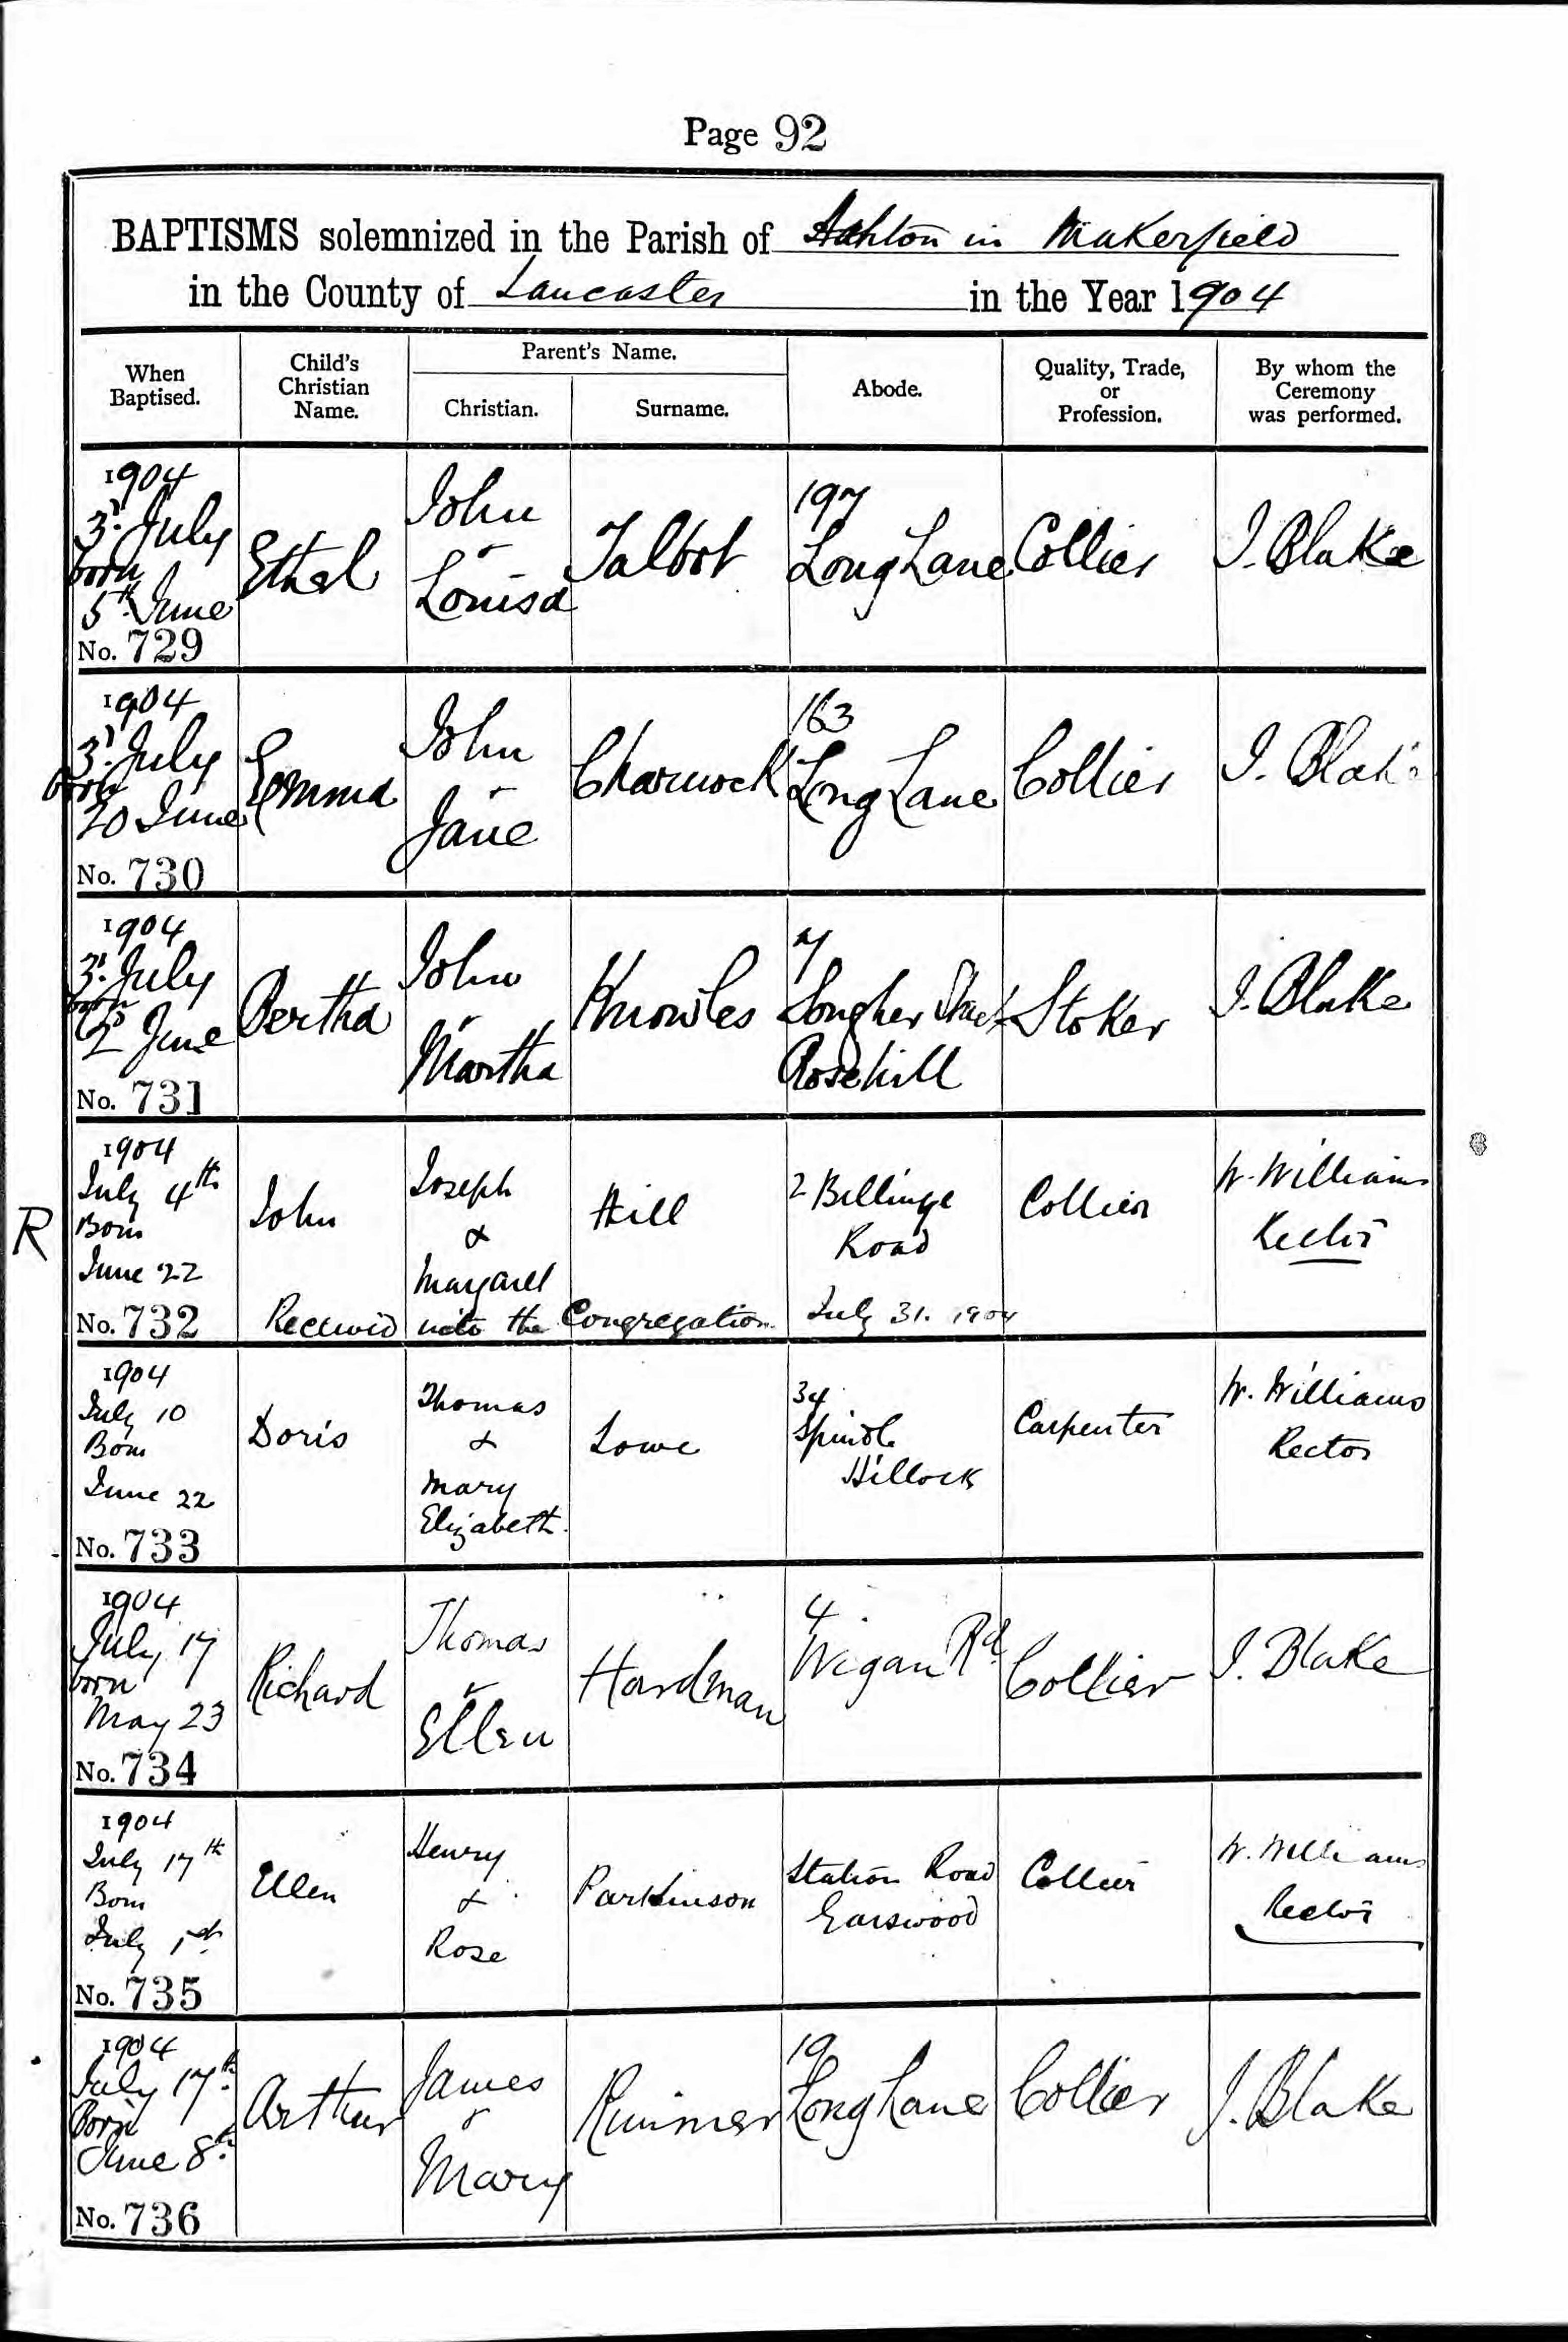 Page 92
BAPTISMS solemnized in the Parish of Ashton in Makerfield
in the County of Lancaster in the Year 1904
When Baptised.
Child's Christian Name.
Parent's Name.
Christian.
Surname.
Abode.
Quality, Trade, or Profession.
By whom the Ceremony was performed.
1904
3d July
born
5th June
No. 729
Ethel
John
&
Louisa
Talbot
197
Long Lane
Collier
J. Blake
1904
3d July
born
20 June
No. 730
Emma
John
&
Jane
Charnock
163
Long Lane
Collier
J. Blake
1904
3d July
born
2d June
No. 731
Bertha
John
&
Martha
Knowles
7
Rosehill
Stoker
J. Blake
R
1904
July 4th
Born
June 22
No. 732
John
Joseph
&
Margaret
Hill
2 Billinge
Road
Collier
W. Williams
Rector
Received into the Congregation July 31. 1904
1904
July 10
Born
June 22
No. 733
Doris
Thomas
&
Mary
Elizabeth.
Lowe
34
Spindle
Hillock
Carpenter
W. Williams
Rector
1904
July 17
born
May 23
No. 734
Richard
Thomas
&
Ellen
Hardman
4
Wigan Rd
Collier
J. Blake
1904
July 17th
Born
July 1st
No. 735
Ellen
Henry
&
Rose
Parkinson
Station Road
Garswood
Collier
W. Williams
Rector
1904
July 17th
Born
June 8th
No. 736
Arthur
James
&
Mary
Rimmer
19
Long Lane
Collier
J. Blake